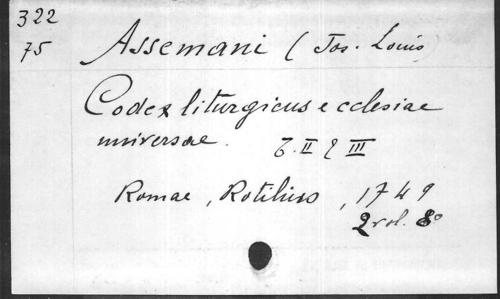 322
75
Assemani (Jos. Louis)
Codex liturgicus ecclesiae
universae. T. II & III
Romae, Rotilius, 1749
2 vol. 8°